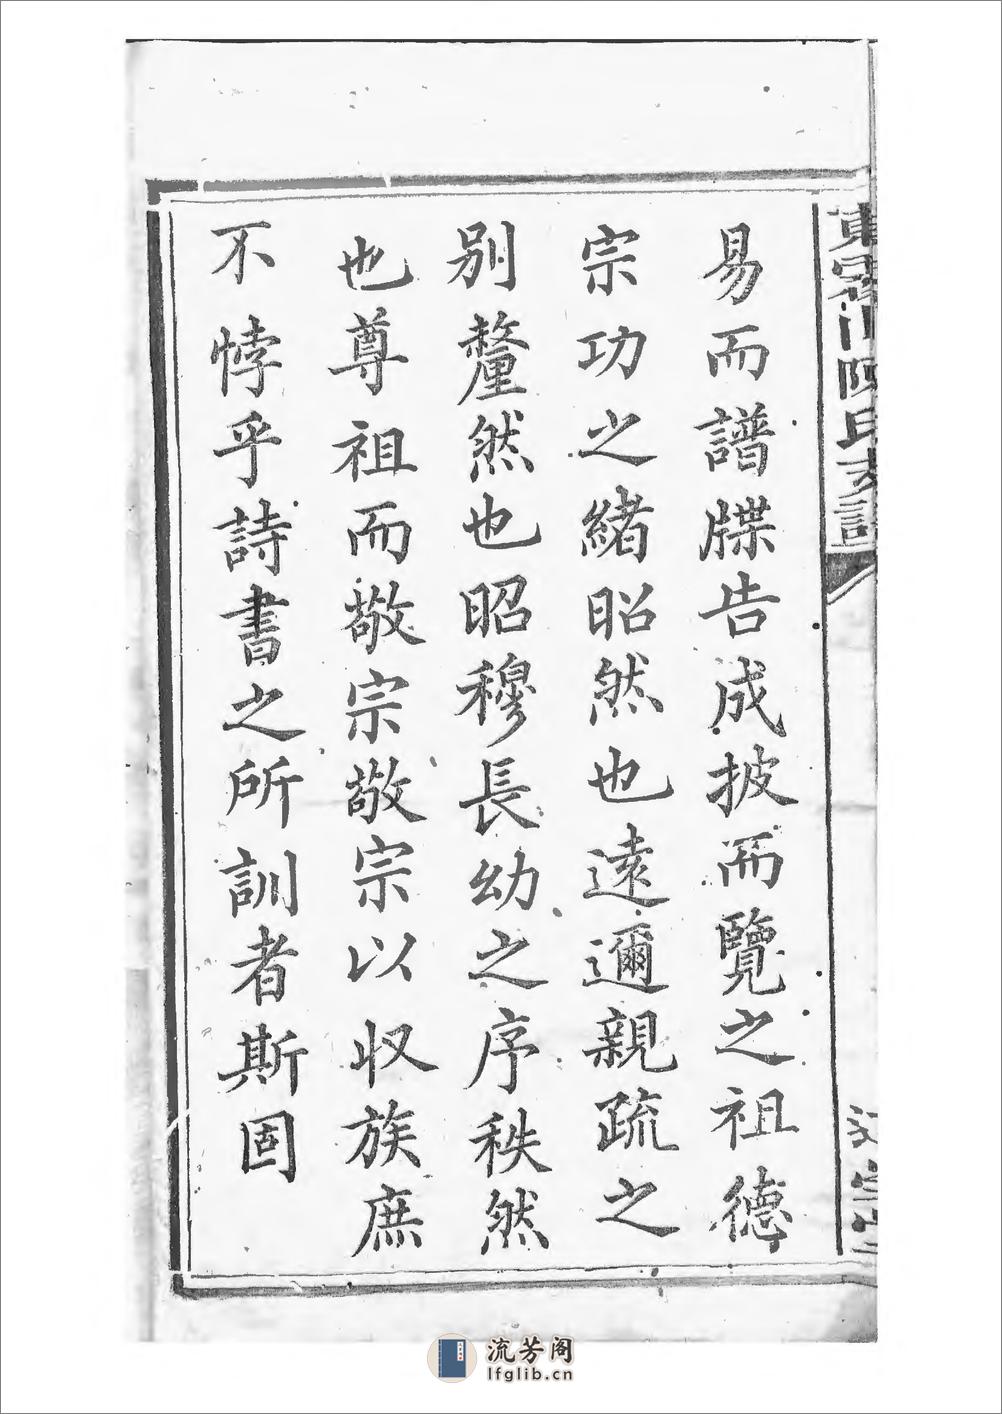 易而譜牒告成披而覽之祖德
宗功之緒昭然也遠邇親疏之
別釐然也昭穆長幼之序秩然
也尊祖而敬宗敬宗以收族庶
不悖乎詩書之所訓者斯固
陳氏支譜
流芳阁
lfglib.cn